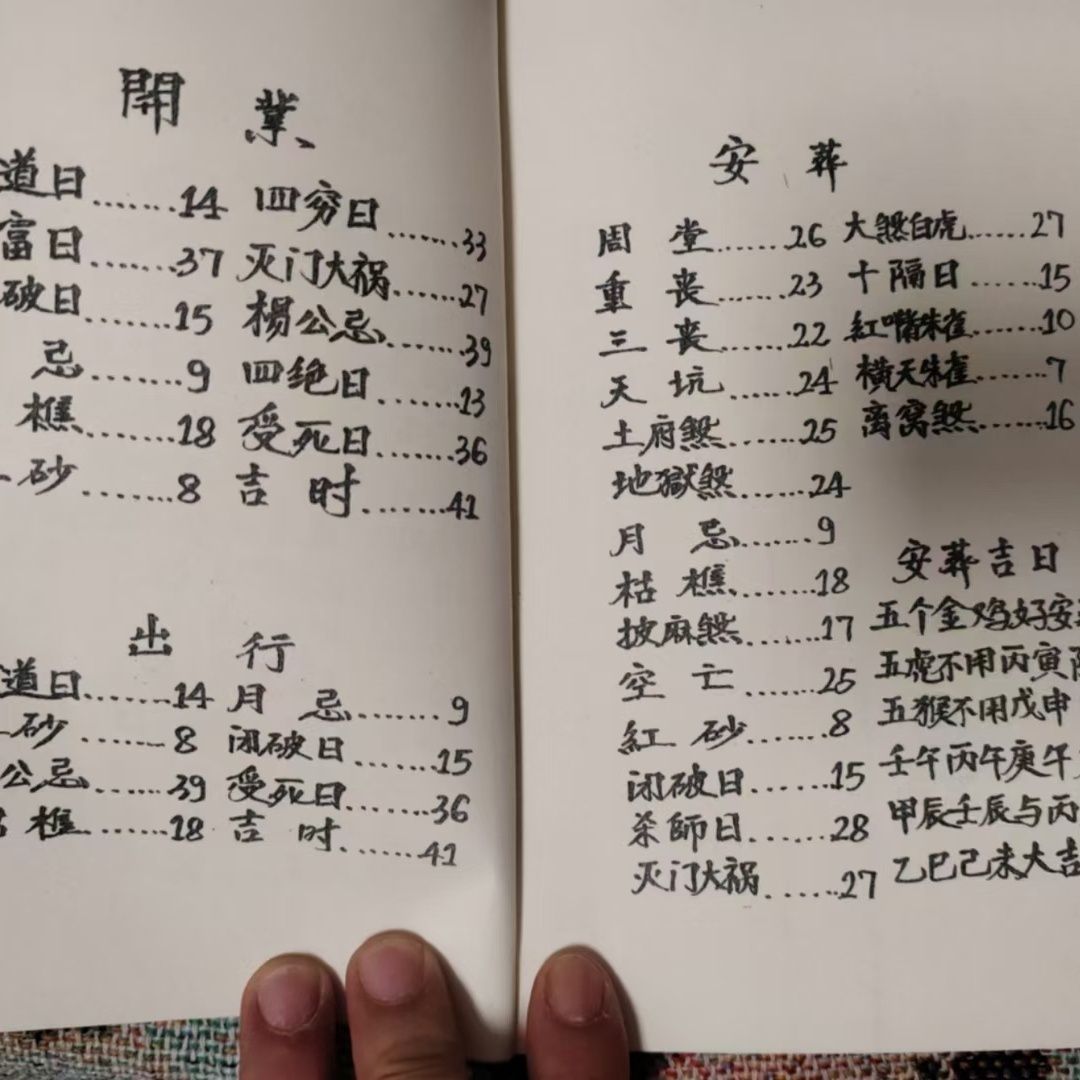 開 業
道日……14 四穷日……33
富日……37 灭门大祸……27
破日……15 楊公忌……39
忌……9 四绝日……13
樵……18 受死日……36
砂……8 吉 时……41
出 行
道日……14 月 忌……9
砂……8 闭破日……15
公忌……39 受死日……36
樵……18 吉 时……41
安 葬
周 堂……26 大煞白虎……27
重 丧……23 十隔日……15
三 丧……22 紅嘴朱雀……10
天 坑……24 横天朱雀……7
土府煞……25 离窝煞……16
地獄煞……24
月 忌……9
枯 樵……18
披麻煞……17
空 亡……25
紅 砂……8
闭破日……15
杀師日……28
灭门大祸……27
安葬吉日
五个金鸡好安
五虎不用丙寅
五猴不用戊申
壬午丙午庚午
甲辰壬辰与丙
乙巳己未大吉